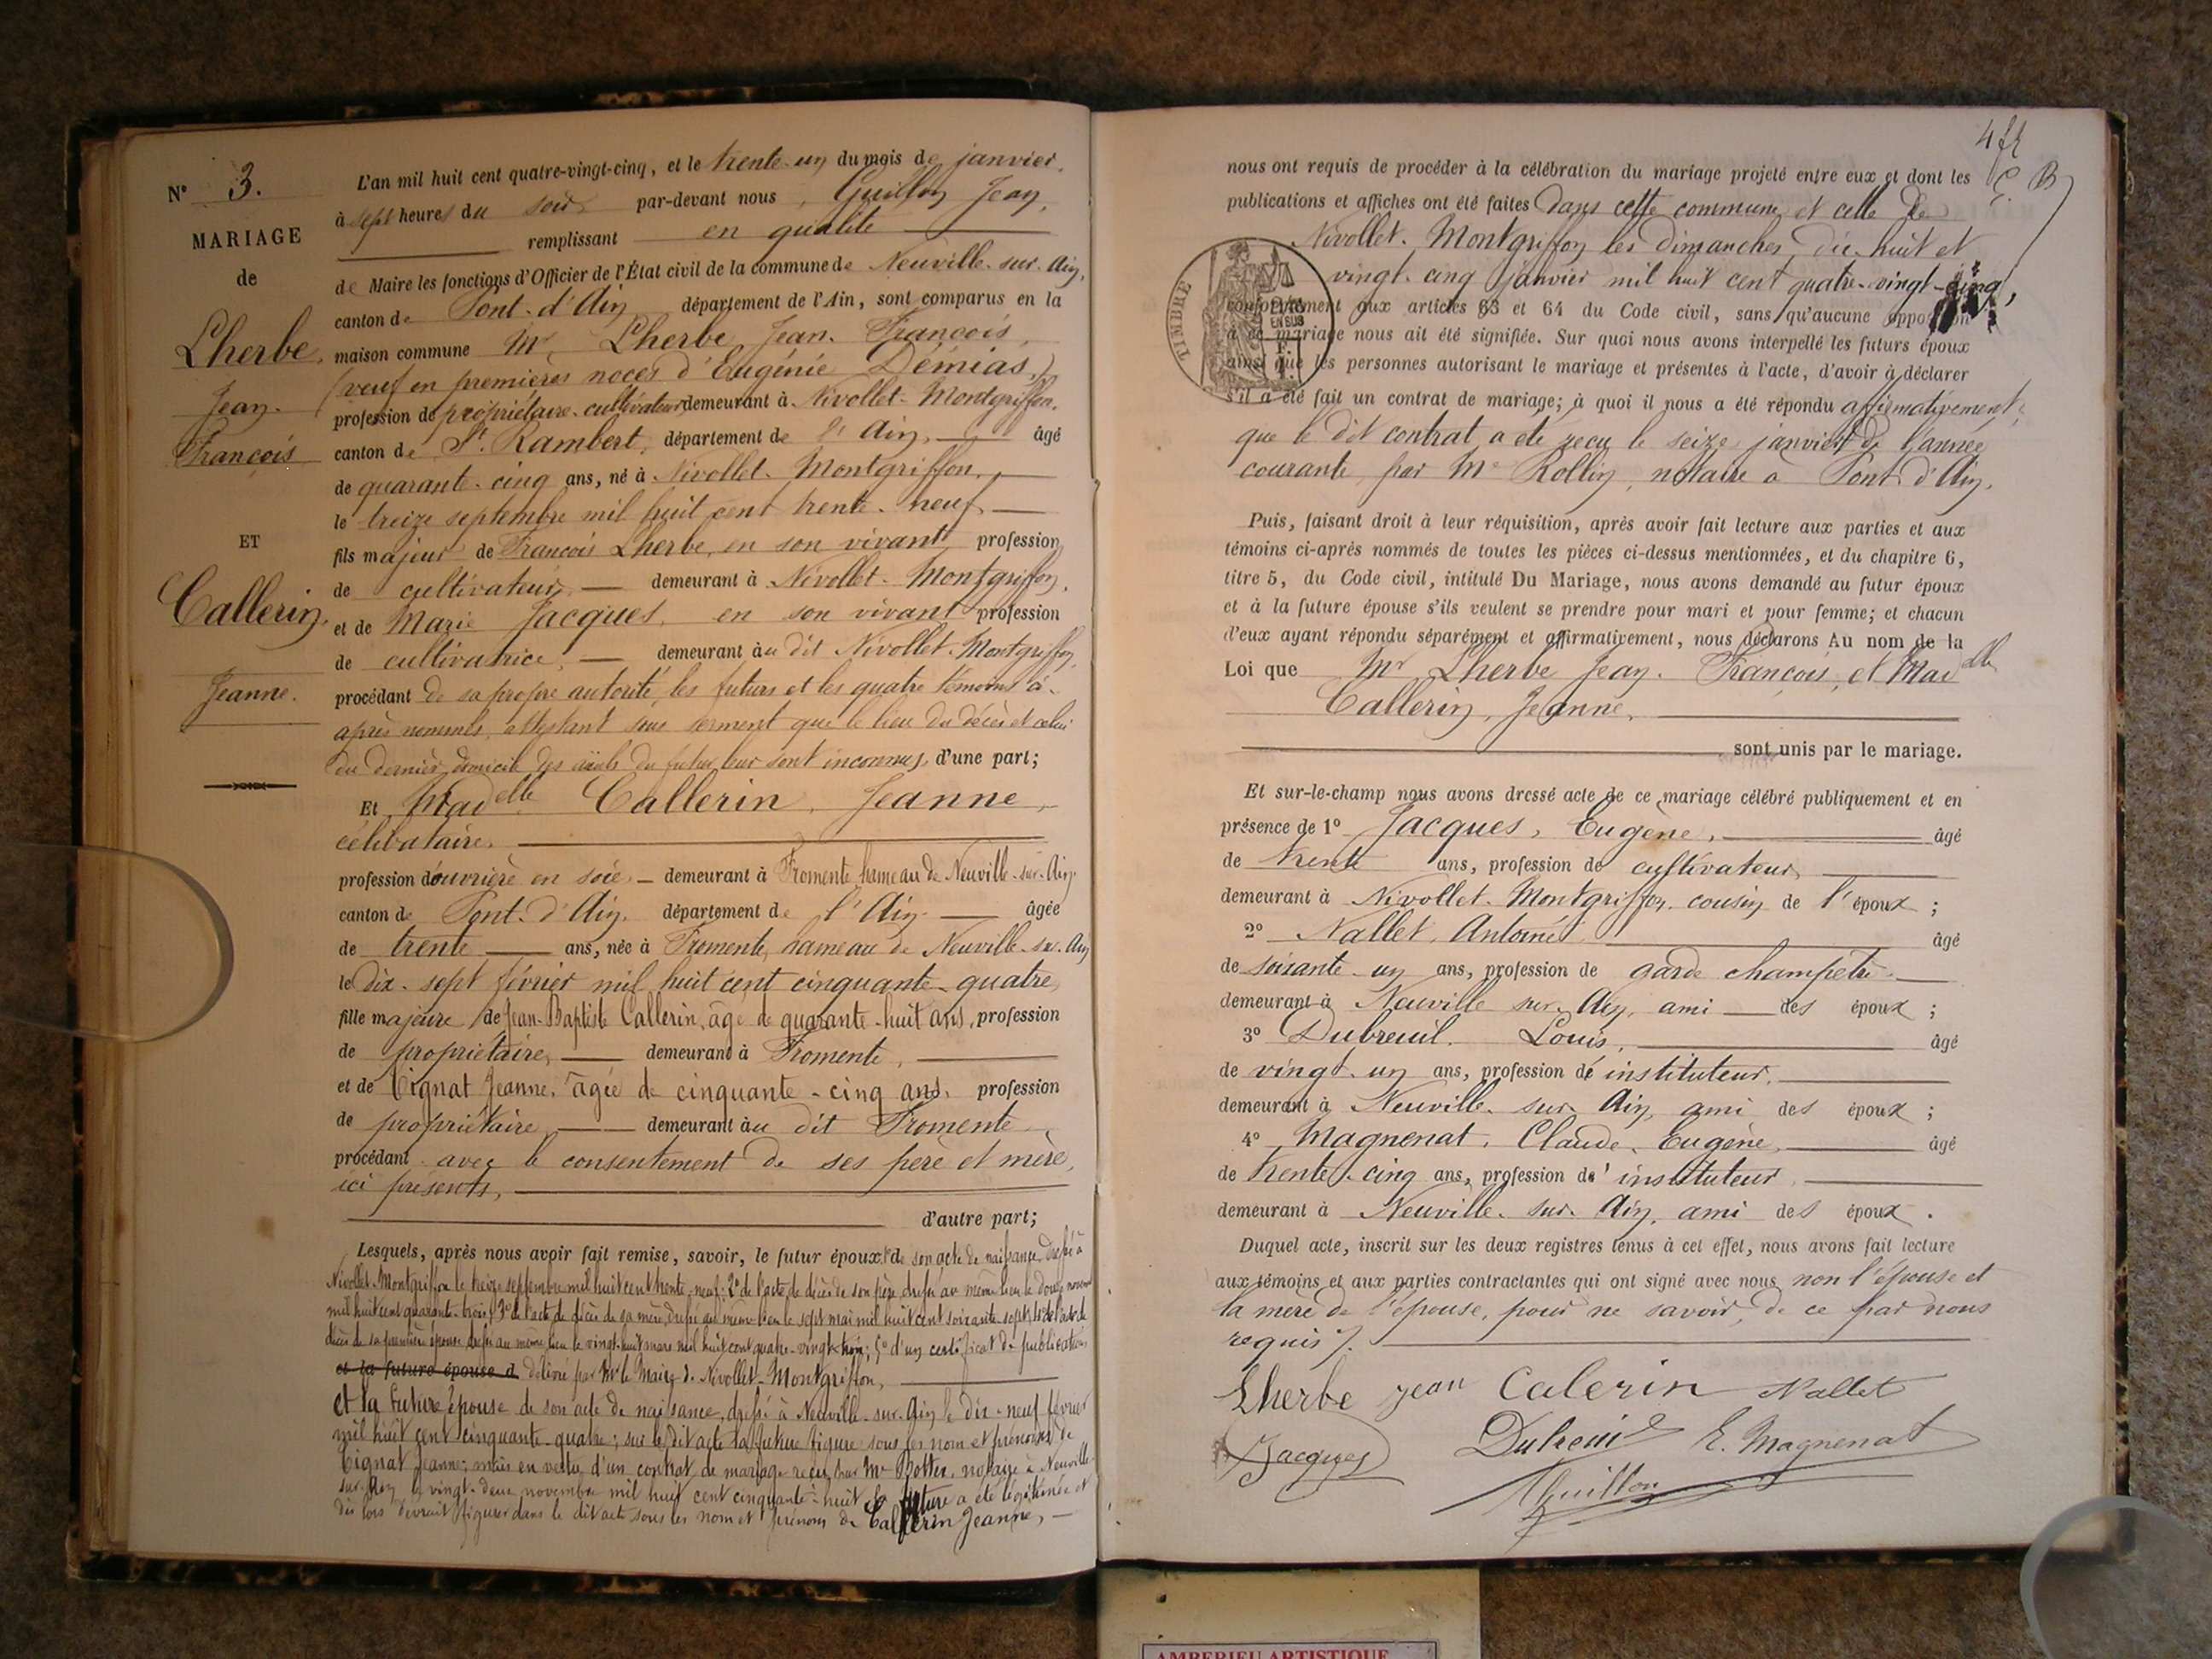 N° 3.
MARIAGE
de
Lherbe,
Jean-
François
ET
Callerin,
Jeanne.
L'an mil huit cent quatre-vingt-cinq, et le trente-un du mois de janvier,
à sept heures du soir par-devant nous, Guillon Jean,
remplissant en qualité
de Maire les fonctions d'Officier de l'État civil de la commune de Neuville-sur-Ain,
canton de Pont-d'Ain département de l'Ain, sont comparus en la
maison commune Mr Lherbe, Jean-François,
(veuf en premières noces d'Eugénie Démias,)
profession de propriétaire-cultivateur demeurant à Nivollet-Montgriffon,
canton de St Rambert, département de l'Ain, âgé
de quarante-cinq ans, né à Nivollet-Montgriffon,
le treize septembre mil huit cent trente-neuf,
fils majeur de François Lherbe, en son vivant profession
de cultivateur, demeurant à Nivollet-Montgriffon,
et de Marie Jacques, en son vivant profession
de cultivatrice, demeurant au dit Nivollet-Montgriffon,
procédant de sa propre autorité, les futurs et les quatre témoins ci-
après nommés, attestant sous serment que le lieu du décès et celui
du dernier domicile des aïeuls du futur leur sont inconnus, d'une part;
Et Madelle Callerin, Jeanne,
célibataire,
profession d'ouvrière en soie, demeurant à Fromente, hameau de Neuville-sur-Ain,
canton de Pont-d'Ain, département de l'Ain âgée
de trente ans, née à Fromente, hameau de Neuville-sur-Ain
le dix-sept février mil huit cent cinquante-quatre,
fille majeure de Jean-Baptiste Callerin, âgé de quarante-huit ans, profession
de propriétaire, demeurand à Fromente,
et de Tignat Jeanne, âgée de cinquante-cinq ans, profession
de propriétaire, demeurant au dit Fromente,
procédant avec le consentement de ses père et mère,
ici présents,
d'autre part;
Lesquels, après nous avoir fait remise, savoir, le futur époux 1° de son acte de naissance, dressé à
Nivollet-Montgriffon le treize septembre mil huit cent trente-neuf; 2° de l'acte de décès de son père, dressé au même lieu le douze novembre
mil huit cent quarante-trois; 3° de l'acte de décès de sa mère, dressé au même lieu le sept mai mil huit cent soixante-sept; 4° de l'acte de
décès de sa première épouse dressé au même lieu le vingt-huit mars mil huit cent quatre-vingt-trois; 5° d'un certificat de publications
et la future épouse d délivré par Mr le Maire de Nivollet-Montgriffon,
et la future épouse de son acte de naissance, dressé à Neuville-sur-Ain le dix-neuf février
mil huit cent cinquante-quatre; sur le dit acte la future figure sous les nom et prénoms de
Tignat Jeanne; mais en vertu d'un contrat de mariage reçu par Me Bottex, notaire à Neuville-
sur-Ain le vingt-deux novembre mil huit cent cinquante-huit la future a été légitimée et
dès lors devrait figurer dans le dit acte sous les nom et prénoms de Callerin Jeanne,
4 ff
B
nous ont requis de procéder à la célébration du mariage projeté entre eux et dont les
publications et affiches ont été faites dans cette commune et celle de
Nivollet-Montgriffon les dimanches dix-huit et
vingt-cinq janvier mil huit cent quatre-vingt-cinq,
TIMBRE
conformément aux articles 63 et 64 du Code civil, sans qu'aucune opposition
à ce mariage nous ait été signifiée. Sur quoi nous avons interpellé les futurs époux
ainsi que les personnes autorisant le mariage et présentes à l'acte, d'avoir à déclarer
s'il a été fait un contrat de mariage; à quoi il nous a été répondu affirmativement,
que le dit contrat a été reçu le seize janvier de l'année
courante, par Me Rollin, notaire à Pont-d'Ain.
Puis, faisant droit à leur réquisition, après avoir fait lecture aux parties et aux
témoins ci-après nommés de toutes les pièces ci-dessus mentionnées, et du chapitre 6,
titre 5, du Code civil, intitulé Du Mariage, nous avons demandé au futur époux
et à la future épouse s'ils veulent se prendre pour mari et pour femme; et chacun
d'eux ayant répondu séparément et affirmativement, nous déclarons Au nom de la
Loi que Mr Lherbe Jean-François, et Madelle
Callerin, Jeanne,
sont unis par le mariage.
Et sur-le-champ nous avons dressé acte de ce mariage célébré publiquement et en
présence de 1° Jacques, Eugène, âgé
de trente ans, profession de cultivateur
demeurant à Nivollet-Montgriffon, cousin de l'époux;
2° Nallet, Antoine, âgé
de soixante-un ans, profession de garde champêtre
demeurant à Neuville-sur-Ain, ami des époux;
3° Dubreuil Louis, âgé
de vingt-un ans, profession d'instituteur,
demeurant à Neuville-sur-Ain, ami des époux;
4° Magnenat, Claude-Eugène, âgé
de trente-cinq ans, profession d'instituteur,
demeurant à Neuville-sur-Ain, ami des époux.
Duquel acte, inscrit sur les deux registres tenus à cet effet, nous avons fait lecture
aux témoins et aux parties contractantes qui ont signé avec nous, non l'épouse et
la mère de l'épouse, pour ne savoir, de ce par nous
requis /.
Lherbe jean Calerin Nallet
Jacques Dubreuil E. Magnenat
Guillon
AMBERIEU ARTISTIQUE